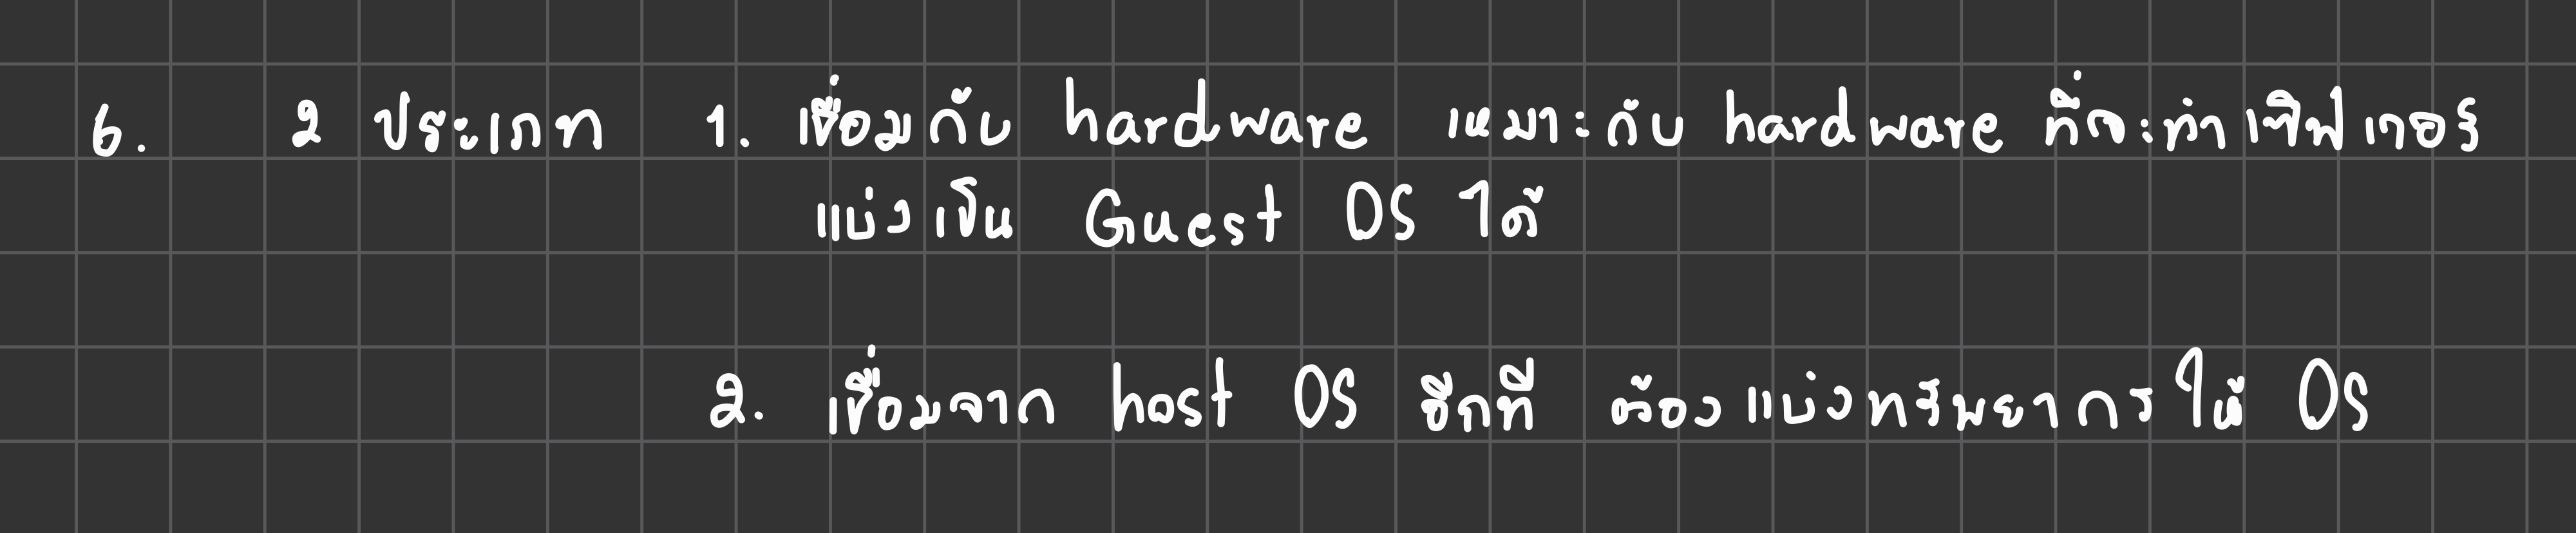 6. 2 ประเภท 1. เชื่อมกับ hardware เหมาะกับ hardware ที่จะทำเซิฟเวอร์
แบ่งเป็น Guest OS ได้
2. เชื่อมจาก host OS อีกที ต้องแบ่งทรัพยากรให้ OS